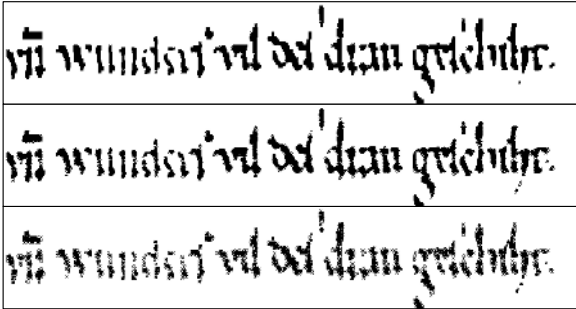 vn̄ wunderſ vil deſ dran geſchiht.
vn̄ wunderſ vil deſ dran geſchiht.
vn̄ wunderſ vil deſ dran geſchiht.